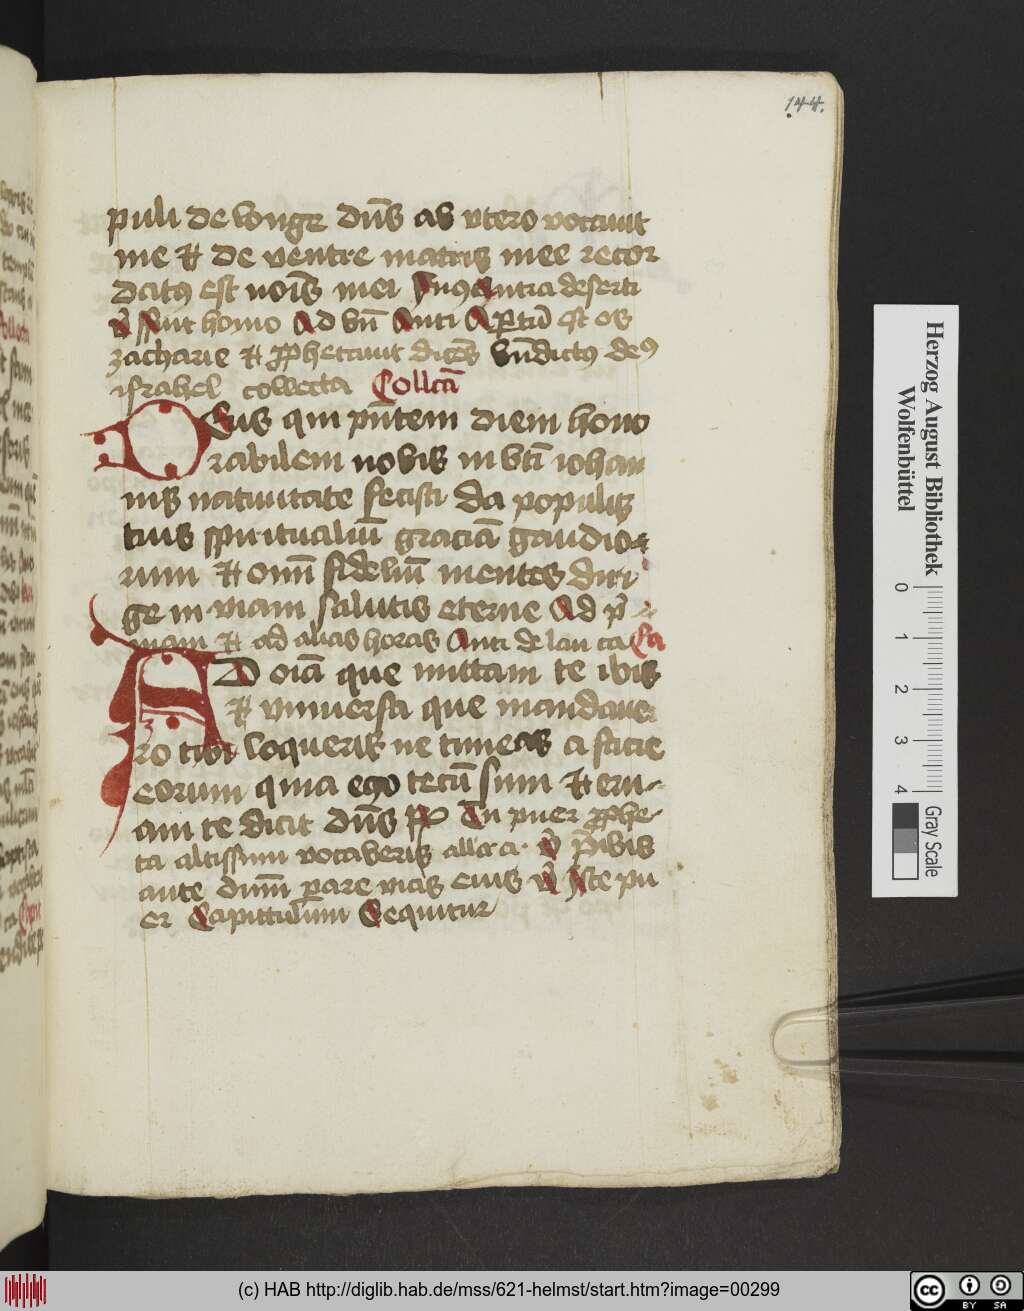 144.
puli de longe dn̄s ab vtero vocauit
me et de ventre matris mee recor
datus est nois̄ mei deserti
v̄ fuit homo Ad bn̄ Anti Ap̄tū est os
zacharie et p̄phetauit dicēs bn̄dictus deus
israhel collecta Collcā
Deus qui pn̄tem diem hono
rabilem nobis in bt̄i iohan
nis natiuitate fecisti da populis
tuis spiritualiū graciā gaudio
rum et omī fideliū mentes diri
ge in viam salutis eterne Ad p̄
mam et ad alias horas Anti de lau ca
AD oīa que mittam te ibis
et vniuersa que mandaue
ro tibi loqueris ne timeas a facie
eorum quia ego tecū sum et eru
am te dicit dn̄s Tu puer p̄phe
ta altissimi vocaberis alla a v̄ p̄ibis
ante dnm̄ p̄are vias eius v̄ Iste pu
er Capittulum Sequitur
Herzog August Bibliothek
Wolfenbüttel
0 1 2 3 4
Gray Scale
(c) HAB http://diglib.hab.de/mss/621-helmst/start.htm?image=00299
cc BY SA